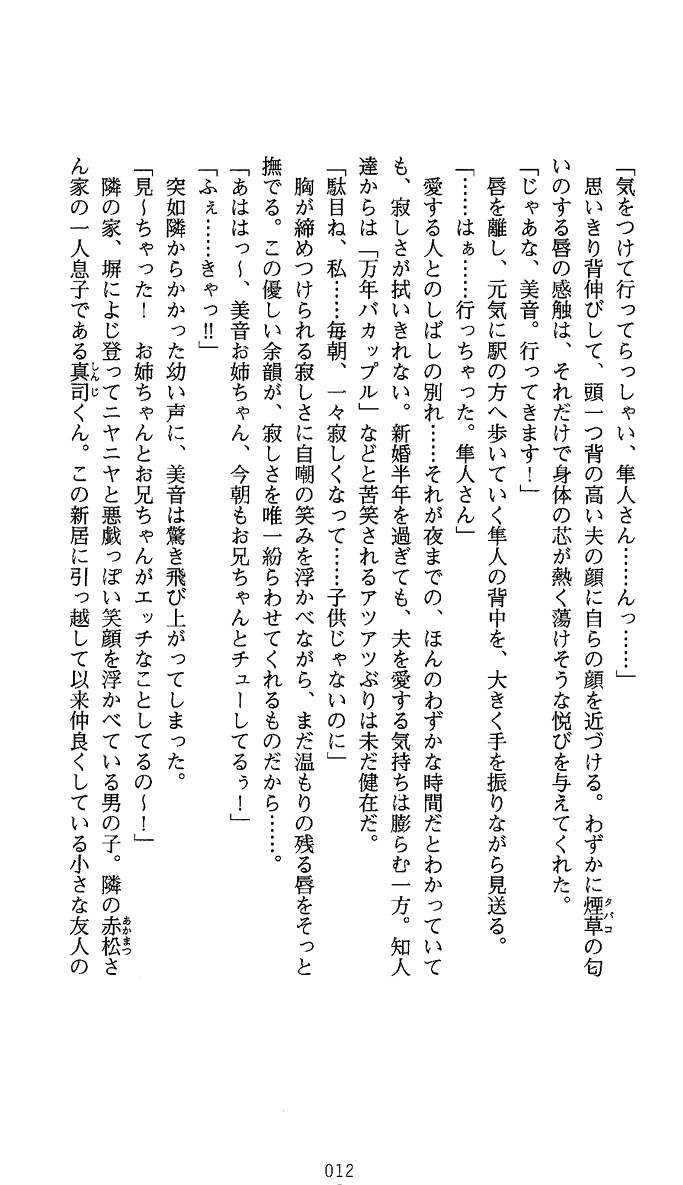 「気をつけて行ってらっしゃい、隼人さん……んっ……」
思いきり背伸びして、頭一つ背の高い夫の顔に自らの顔を近づける。わずかに煙草の匂
いのする唇の感触は、それだけで身体の芯が熱く蕩けそうな悦びを与えてくれた。
「じゃあな、美音。行ってきます！」
唇を離し、元気に駅の方へ歩いていく隼人の背中を、大きく手を振りながら見送る。
「……はぁ……行っちゃった。隼人さん」
愛する人とのしばしの別れ……それが夜までの、ほんのわずかな時間だとわかっていて
も、寂しさが拭いきれない。新婚半年を過ぎても、夫を愛する気持ちは膨らむ一方。知人
達からは「万年バカップル」などと苦笑されるアツアツぶりは未だ健在だ。
「駄目ね、私……毎朝、一々寂しくなって……子供じゃないのに」
胸が締めつけられる寂しさに自嘲の笑みを浮かべながら、まだ温もりの残る唇をそっと
撫でる。この優しい余韻が、寂しさを唯一紛らわせてくれるものだから……。
「あははっ～、美音お姉ちゃん、今朝もお兄ちゃんとチューしてるぅ！」
「ふぇ……きゃっ!!」
突如隣からかかった幼い声に、美音は驚き飛び上がってしまった。
「見～ちゃった！　お姉ちゃんとお兄ちゃんがエッチなことしてるの～！」
隣の家、塀によじ登ってニヤニヤと悪戯っぽい笑顔を浮かべている男の子。隣の赤松さ
ん家の一人息子である真司くん。この新居に引っ越して以来仲良くしている小さな友人の
012